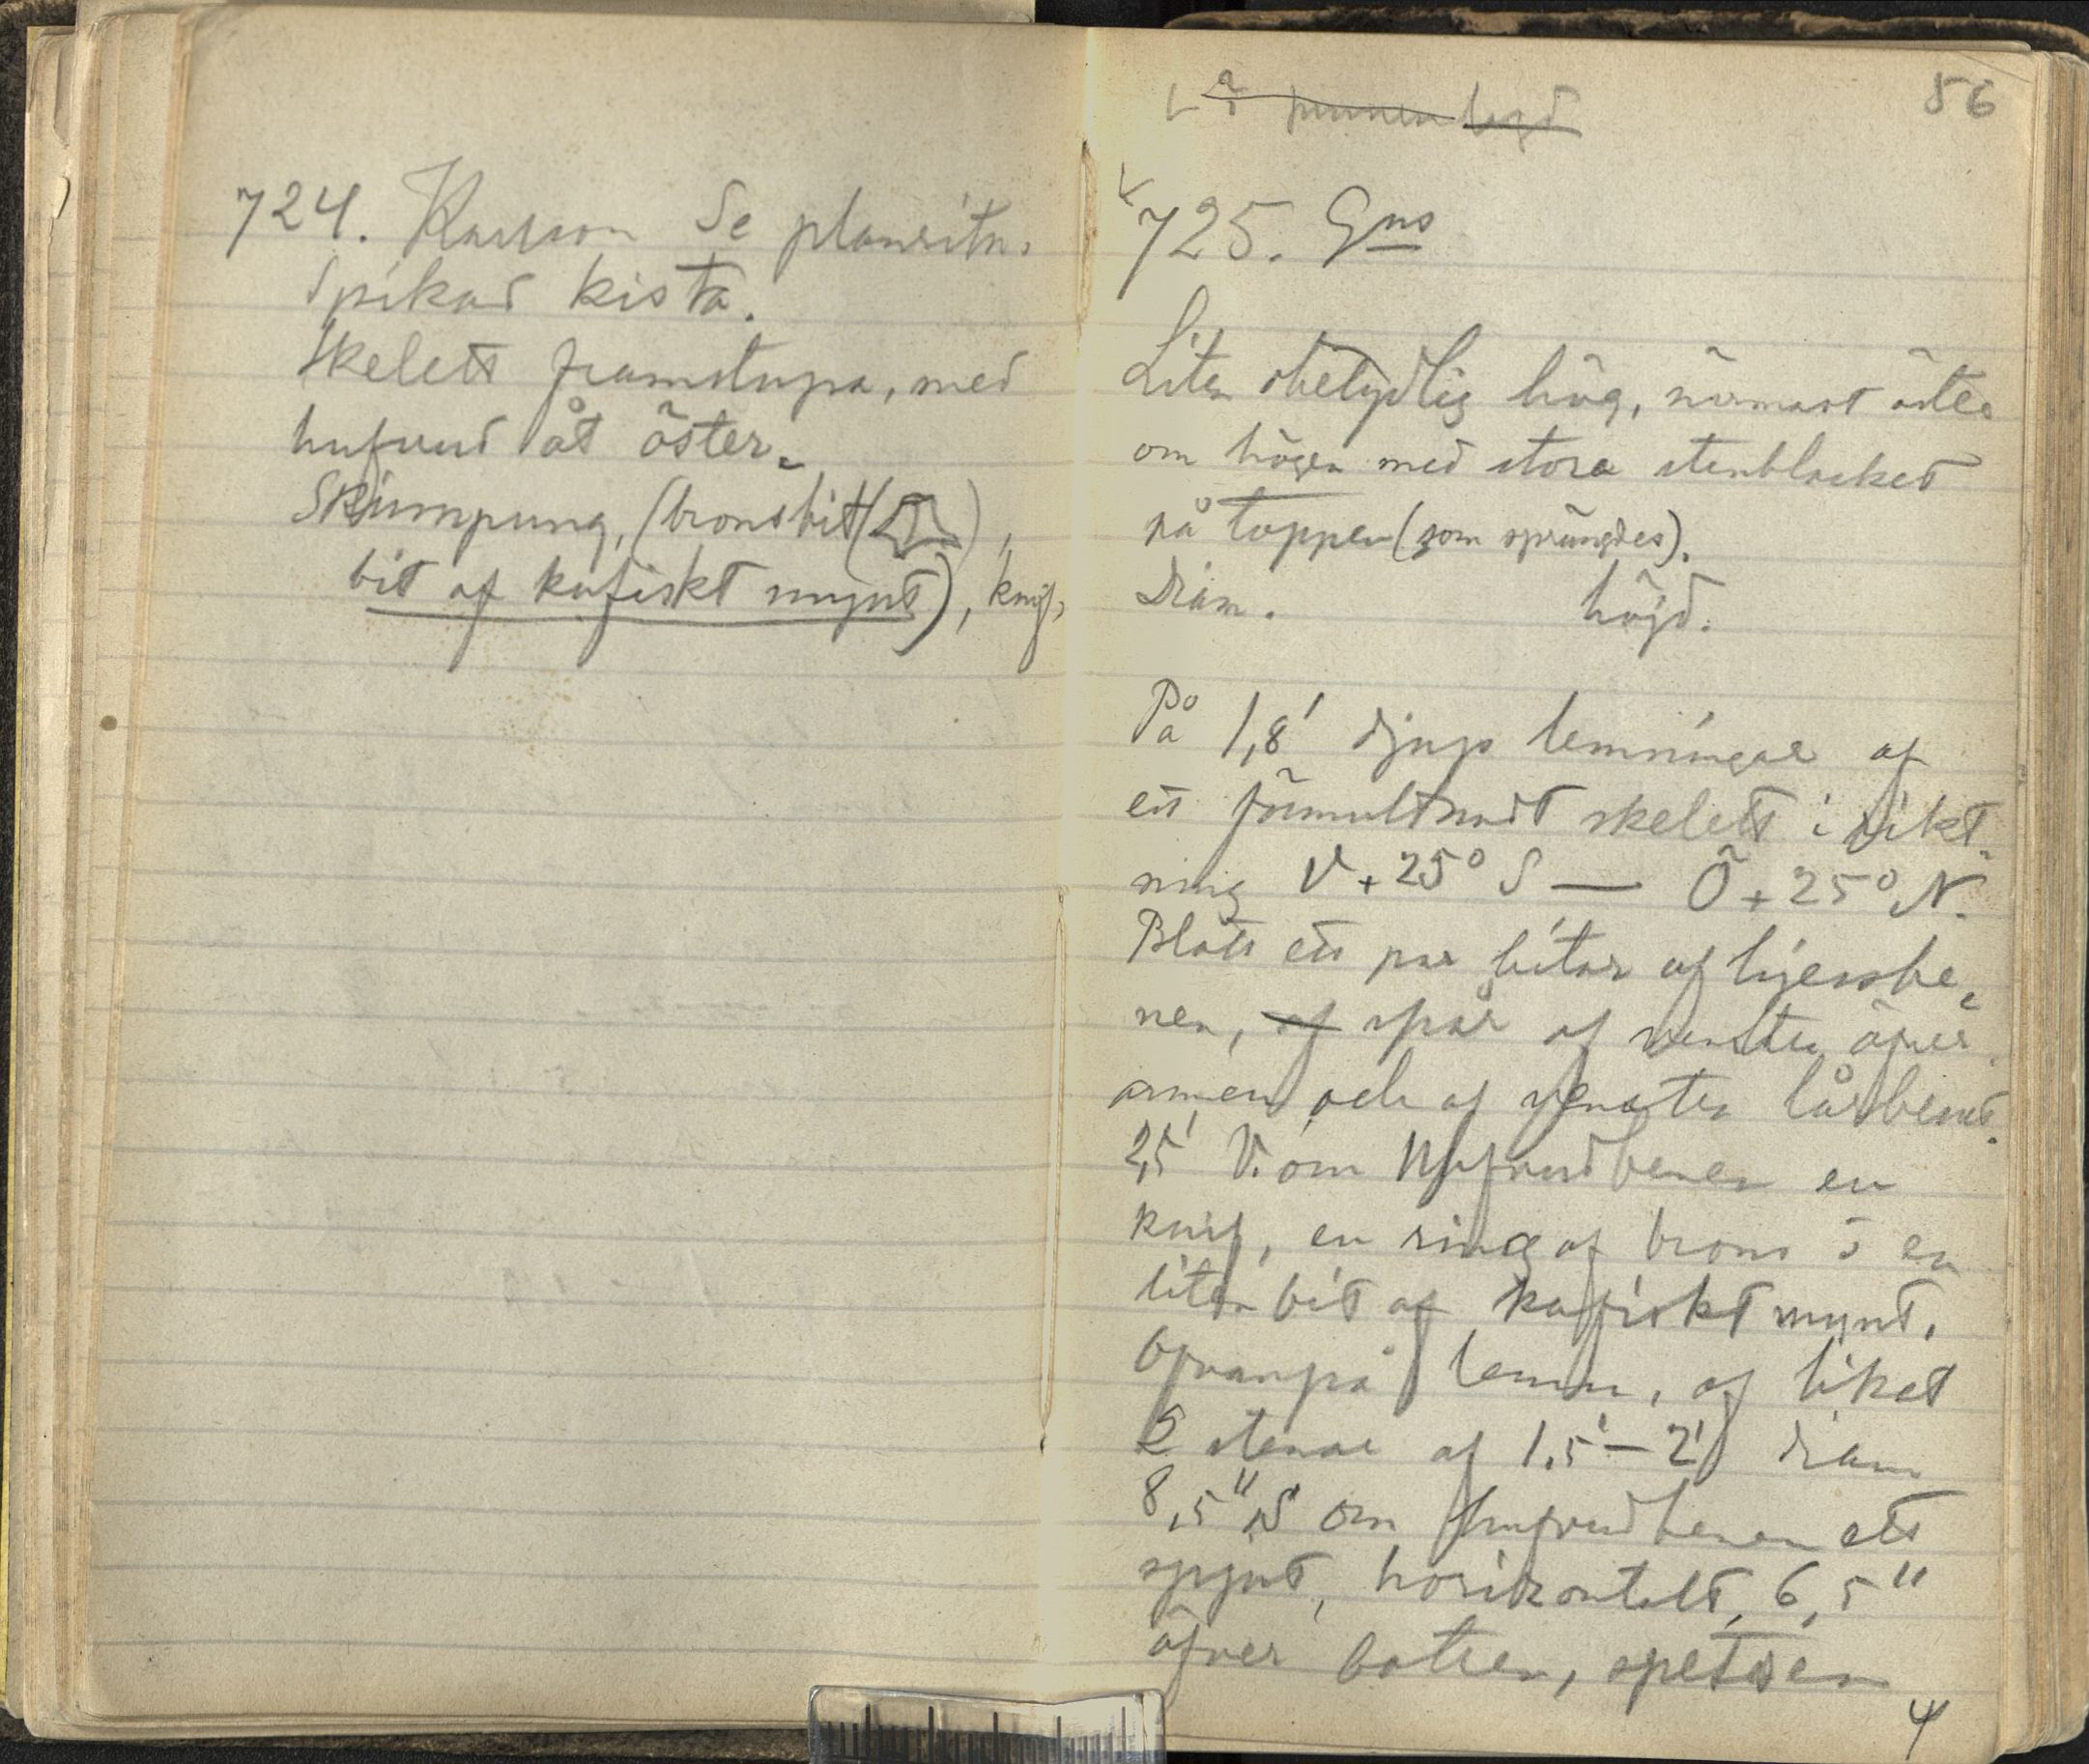 724. Karlson Se planritn.
Spikad kista.
Skelett framstupa, med
hufvud åt öster.
Skinnpung, (bronsbit( ),
bit af kufiskt mynt), knif,
56
725. Gns
Liten obetydlig hög, närmast öster
om högen med stora stenblocket
på toppen (som sprängdes).
Diam. höjd.
På 1,8' djup lemningar af
ett förmultnadt skelett i rikt-
ning V+25° S — Ö+25° N.
Blott ett par bitar af hjessbe-
nen, af spår af venster öfver
armen och af venster lårbenet.
2,5' V. om hufvudbenen en
knif, en ring af brons o en
liten bit af kufiskt mynt.
Ofvanpå lemn. af liket
2 stenar af 1,5'—2' diam
8,5" S om hufvudbenen ett
spjut, horizontelt, 6,5"
öfver botten, spetsen